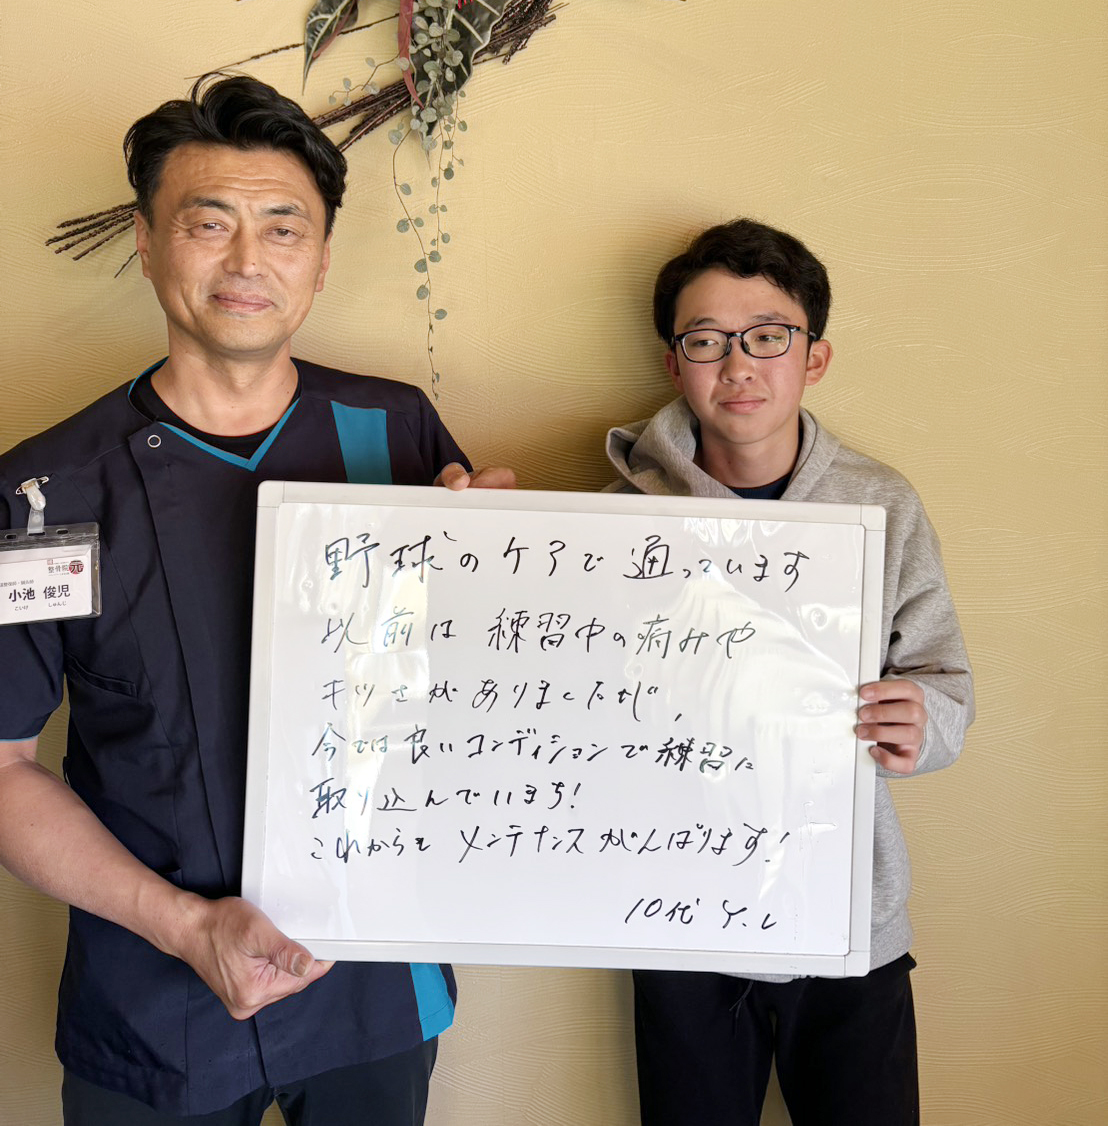 野球のケアで通っています
以前は練習中の痛みや
キツさがありましたが、
今では良いコンディションで練習に
取り込んでいます!
これからも メンテナンスがんばります!
10代 Y.L
整骨院
小池 俊児
こいけ しゅんじ